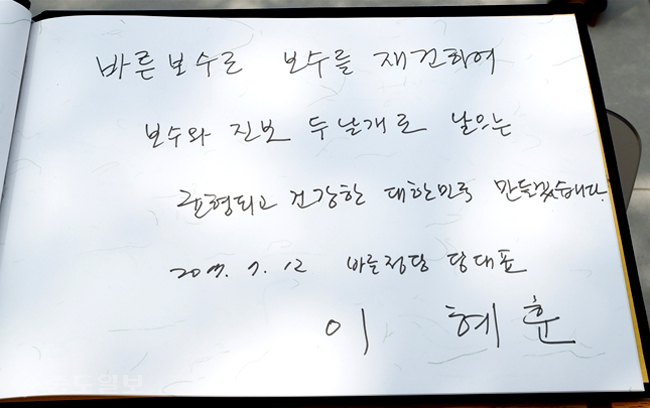 바른보수로 보수를 재건하여
보수와 진보 두날개로 날으는
균형되고 건강한 대한민국 만들겠습니다.
2017. 7. 12 바른정당 당대표
이 혜훈
도일보